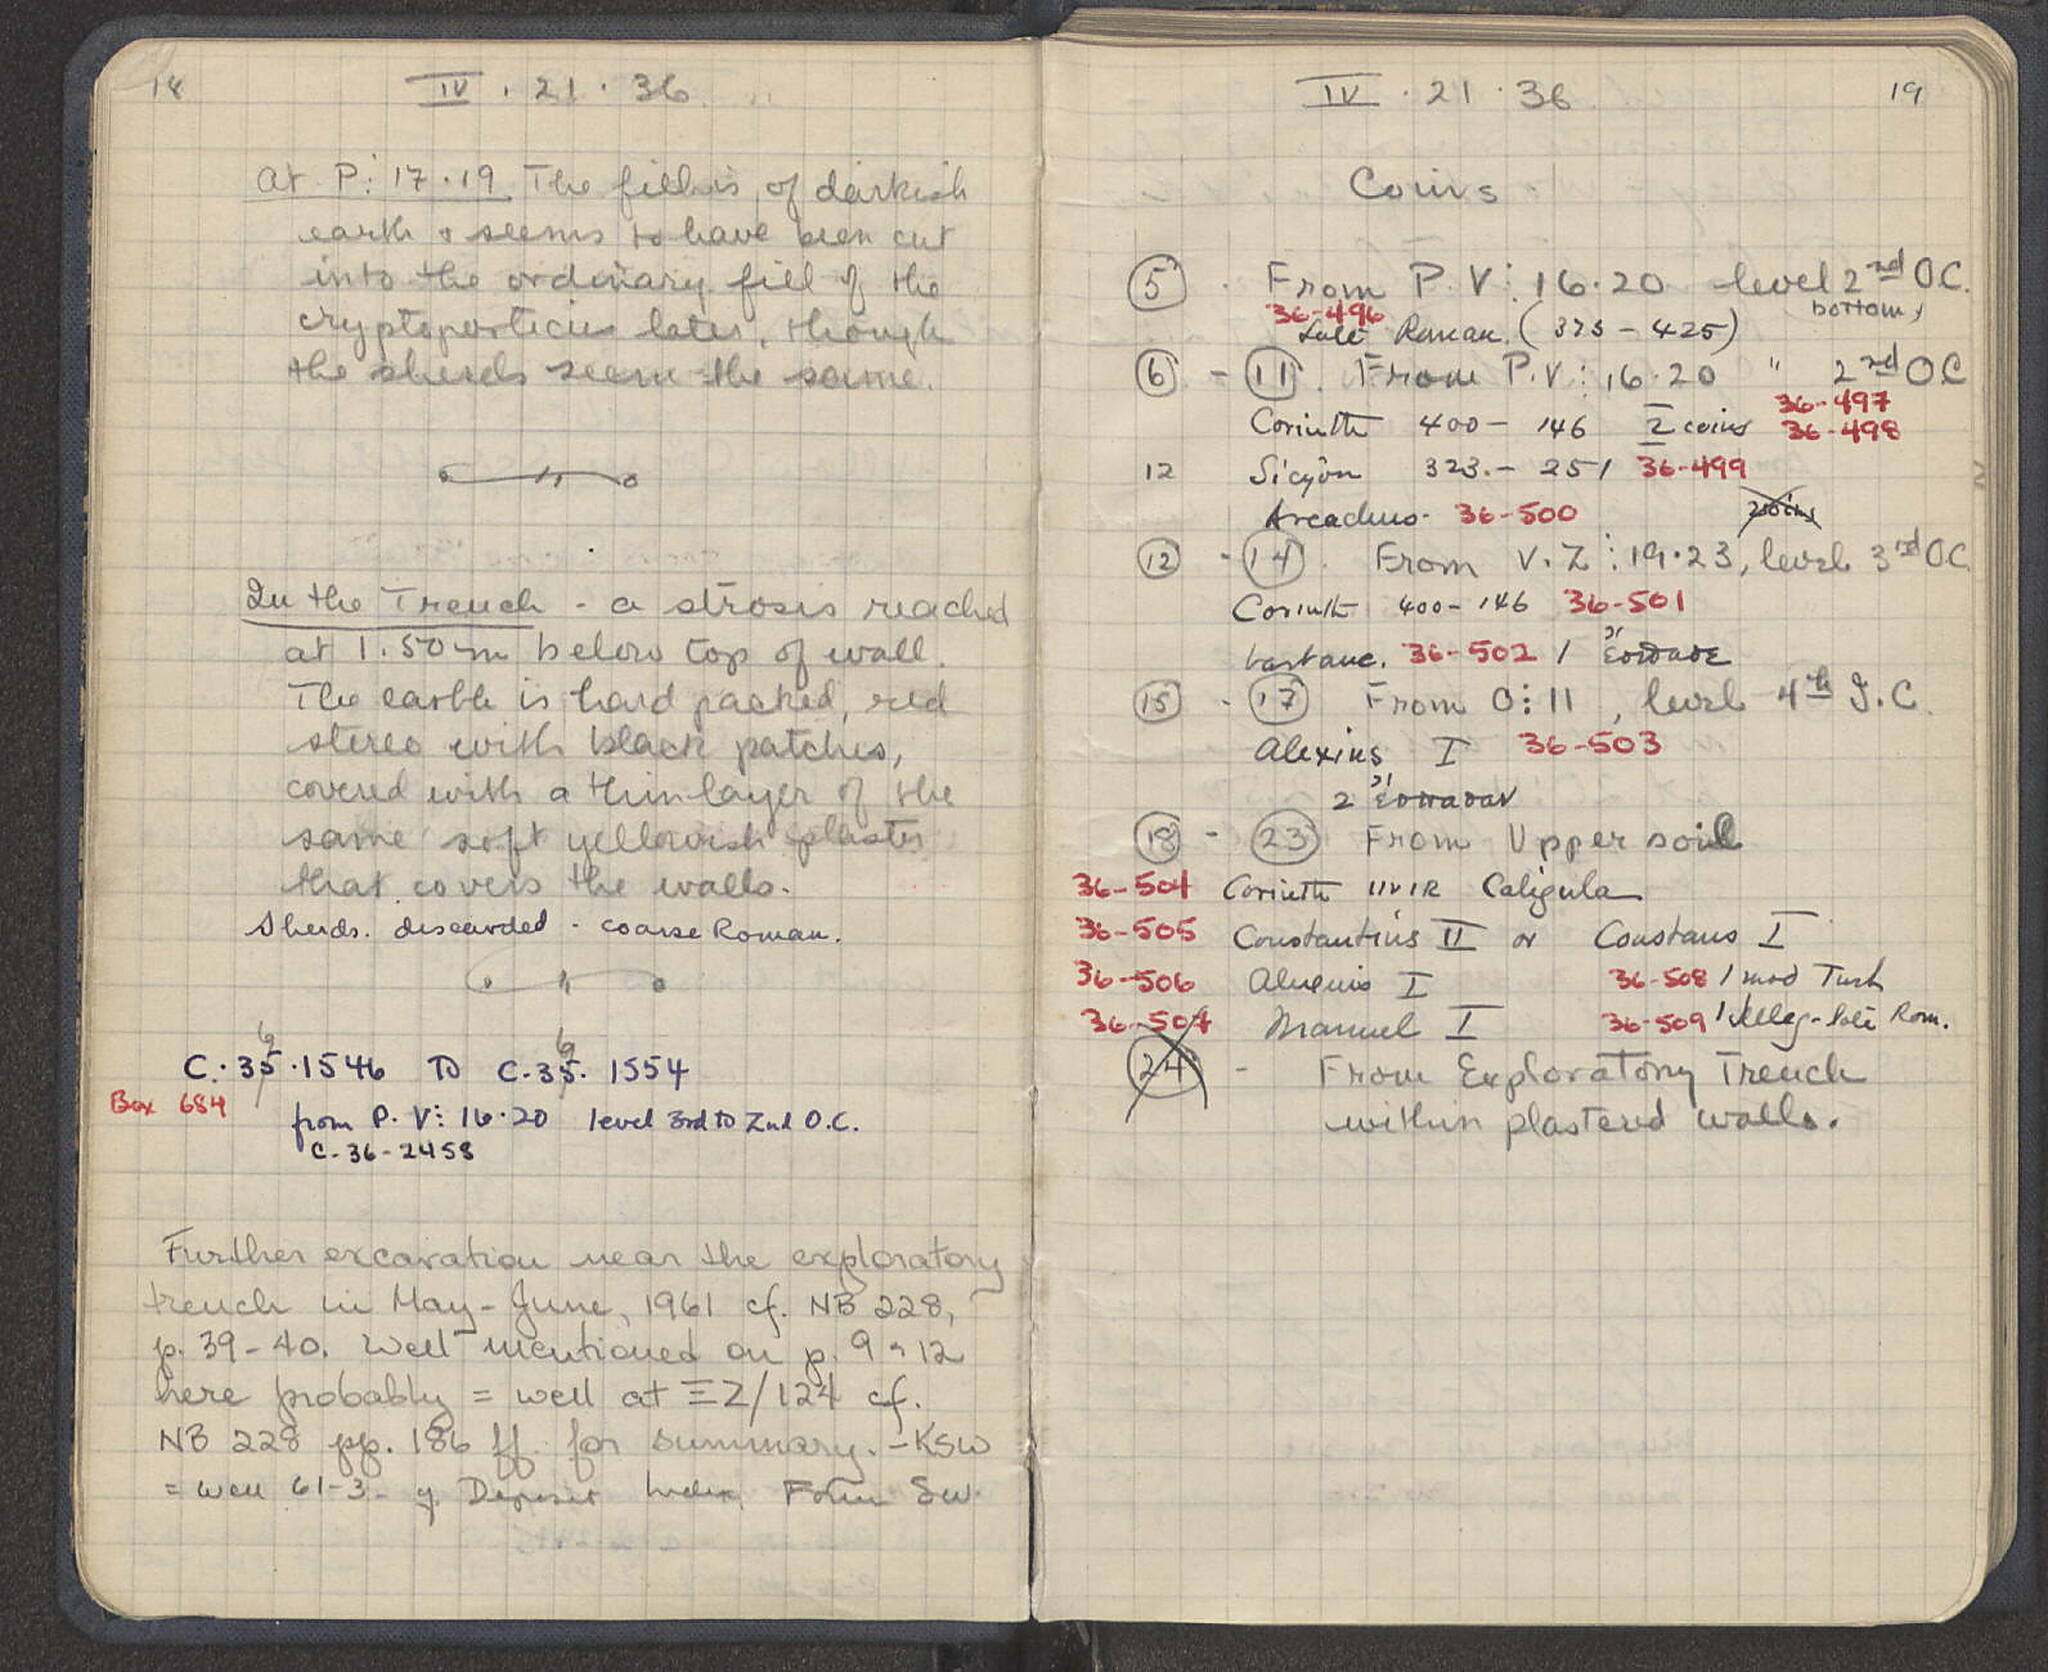 18
IV . 21 . 36
At P: 17.19 The fill is of darkish
earth & seems to have been cut
into the ordinary fill of the
cryptoporticus later, though
the sherds seem the same.
In the Trench - a strosis reached
at 1.50 m below top of wall.
The earth is hard packed, red
stereo with black patches,
covered with a thin layer of the
same soft yellowish plaster
that covers the walls.
Sherds. discarded - coarse Roman.
6 6
C. 35 . 1546 TO C. 35. 1554
Box 684
from P. V: 16.20 level 3rd to 2nd O.C.
C-36-2458
Further excavation near the exploratory
trench in May-June, 1961 cf. NB 228,
p. 39-40. Well mentioned on p. 9 + 12
here probably = well at ΞZ/124 cf.
NB 228 pp. 186 ff. for summary. -KSW
= well 61-3 - cf. Deposit Index. Forum SW.
IV . 21 . 36
19
Coins
(5) . From P. V: 16.20 level 2nd O.C.
36-496 bottom,
Late Roman (375 - 425)
(6) - (11). From P.V: 16.20 " 2nd O.C
36-497
Corinth 400 - 146 2 coins 36-498
12 Sicyon 323. - 251 36-499
Arcadius. 36-500 2 coins
(12) - (14). From V. Z: 19.23, level 3rd O.C.
Corinth 400-146 36-501
36-502 1
(15) - (17) From O: 11, level 4th J.C.
Alexius I 36-503
2
(18) - (23) From Upper soil
36-504 Corinth IIVIR Caligula
36-505 Constantius II or Constans I
36-506 Alexius I 36-508 1 mod Turk
36-507 Manuel I 36-509 1 illeg-late Rom.
(24) - From Exploratory Trench
within plastered walls.